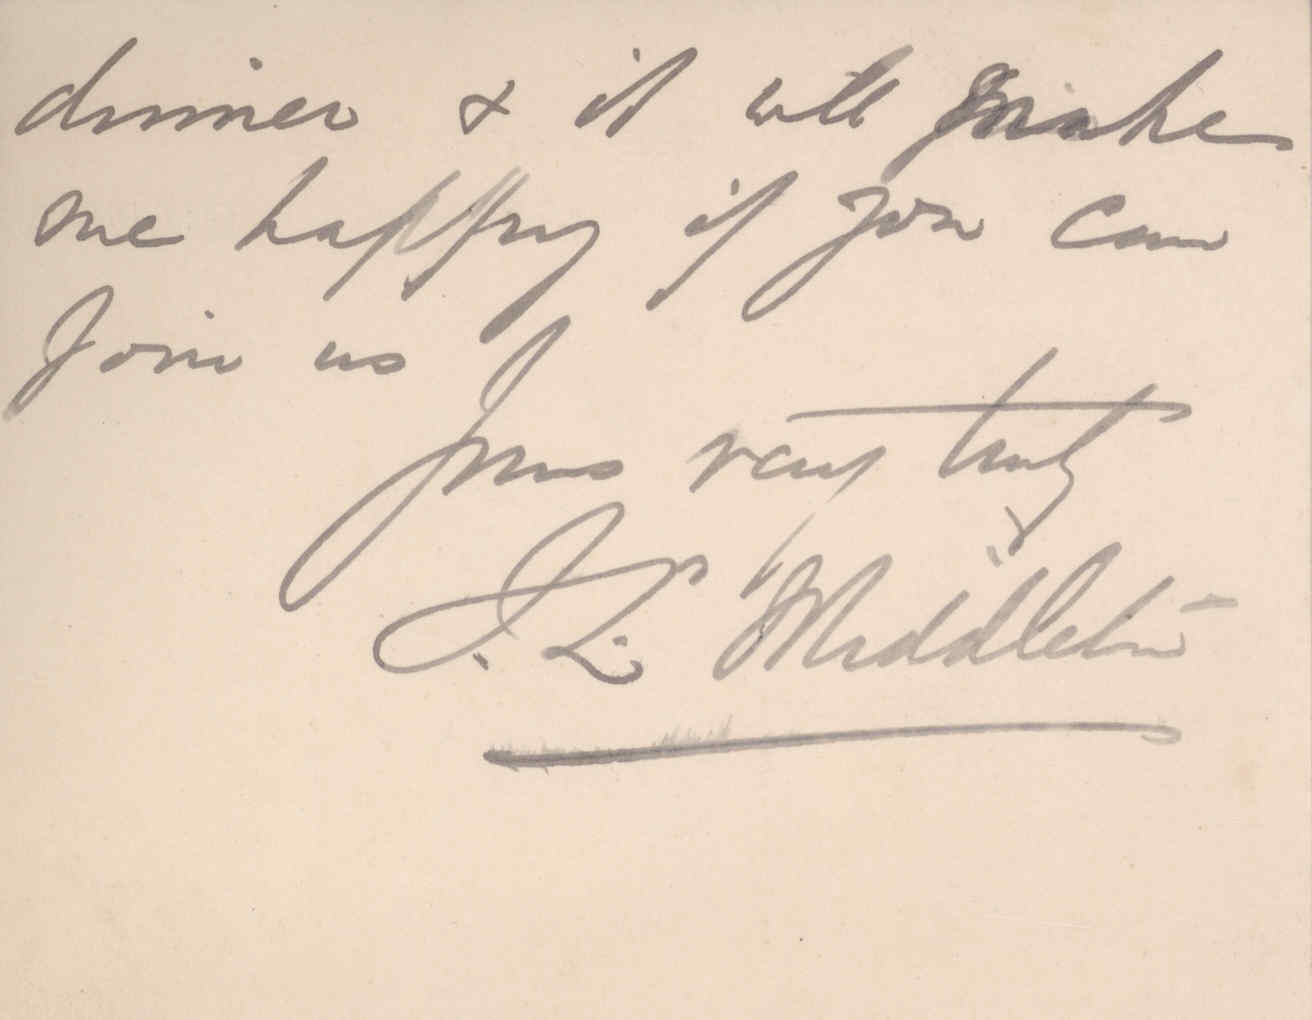 dinner & it will make
me happy if you can
Join us
Yours very truly
J. L. Middleton